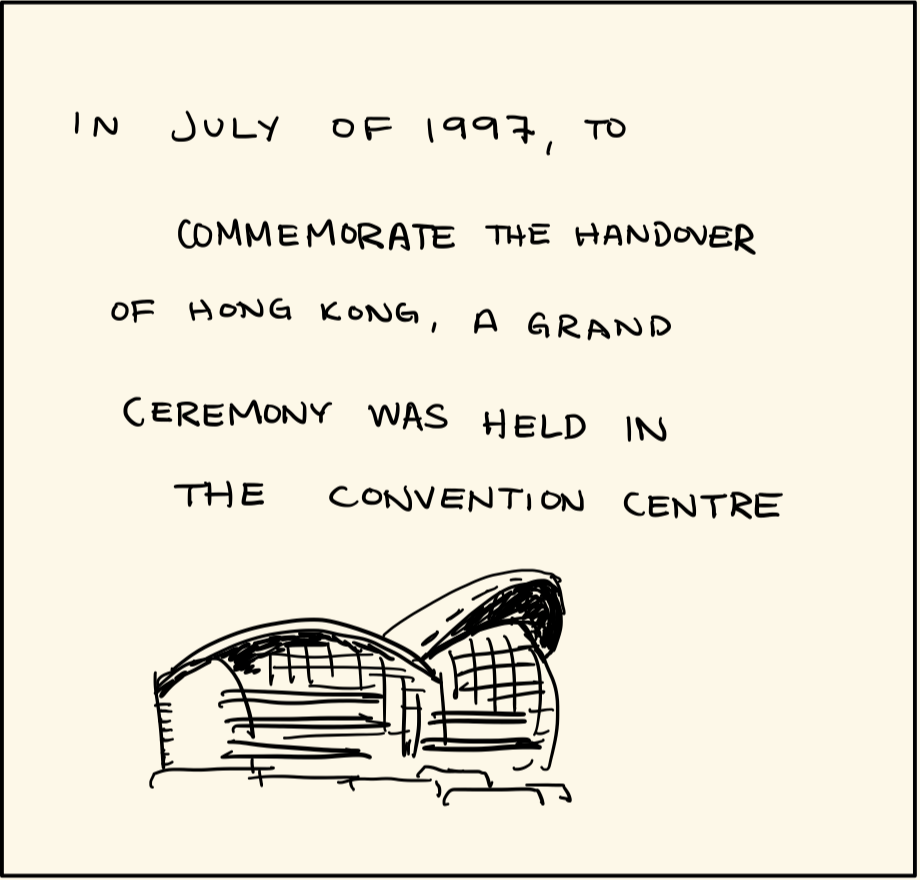 IN JULY OF 1997, TO
COMMEMORATE THE HANDOVER
OF HONG KONG, A GRAND
CEREMONY WAS HELD IN
THE CONVENTION CENTRE